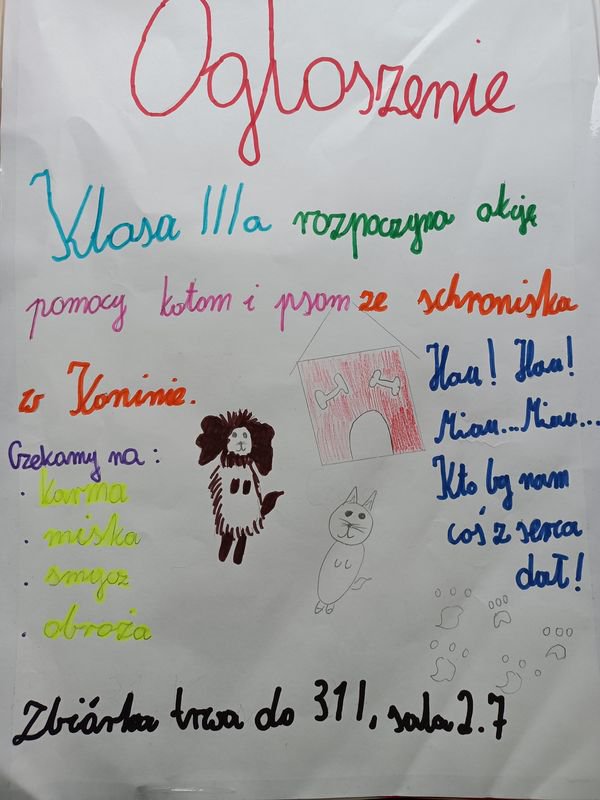 Ogłoszenie
Klasa IIIa rozpoczyna akcję
pomocy kotom i psom ze schroniska
w Koninie.
Czekamy na:
· karma
· miska
· smycz
· obroża
Hau! Hau!
Miau...Miau...
Kto by nam
coś z serca
dał!
Zbiórka trwa do 31 I, sala 2.7